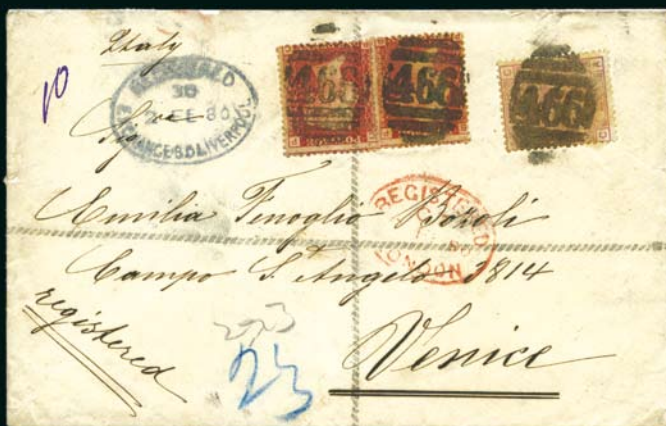 Italy
10
REGISTERED
30
2 FE 80
EXCHANGE S.O LIVERPOOL
466
466
466
Emilia Fenoglio Bozoli
REGISTERED
80
LONDON
Campo S. Angelo 3814
registered
223
23
Venice